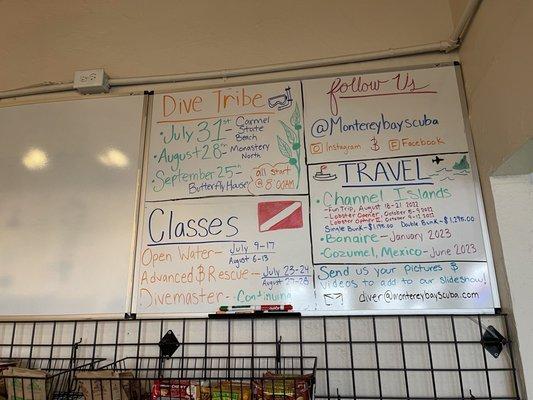 Dive Tribe
• July 31st - Carmel State Beach
• August 28th - Monastery North
• September 25th - Butterfly House
all start @ 8:00am
Classes
Open Water - July 9-17
August 6-13
Advanced & Rescue - July 23-24
August 27-28
Divemaster - Continuous
Follow Us
@Montereybayscuba
Instagram & Facebook
TRAVEL
• Channel Islands
- Fun Trip, August 18-21 2022
- Lobster Opener, October
- Lobster Option II, October 9-12 2022
Single Bunk - $1,195.00 Double Bunk - $1,295.00
• Bonaire - January 2023
• Cozumel, Mexico - June 2023
Send us your Pictures &
videos to add to our slideshow!
diver@montereybayscuba.com